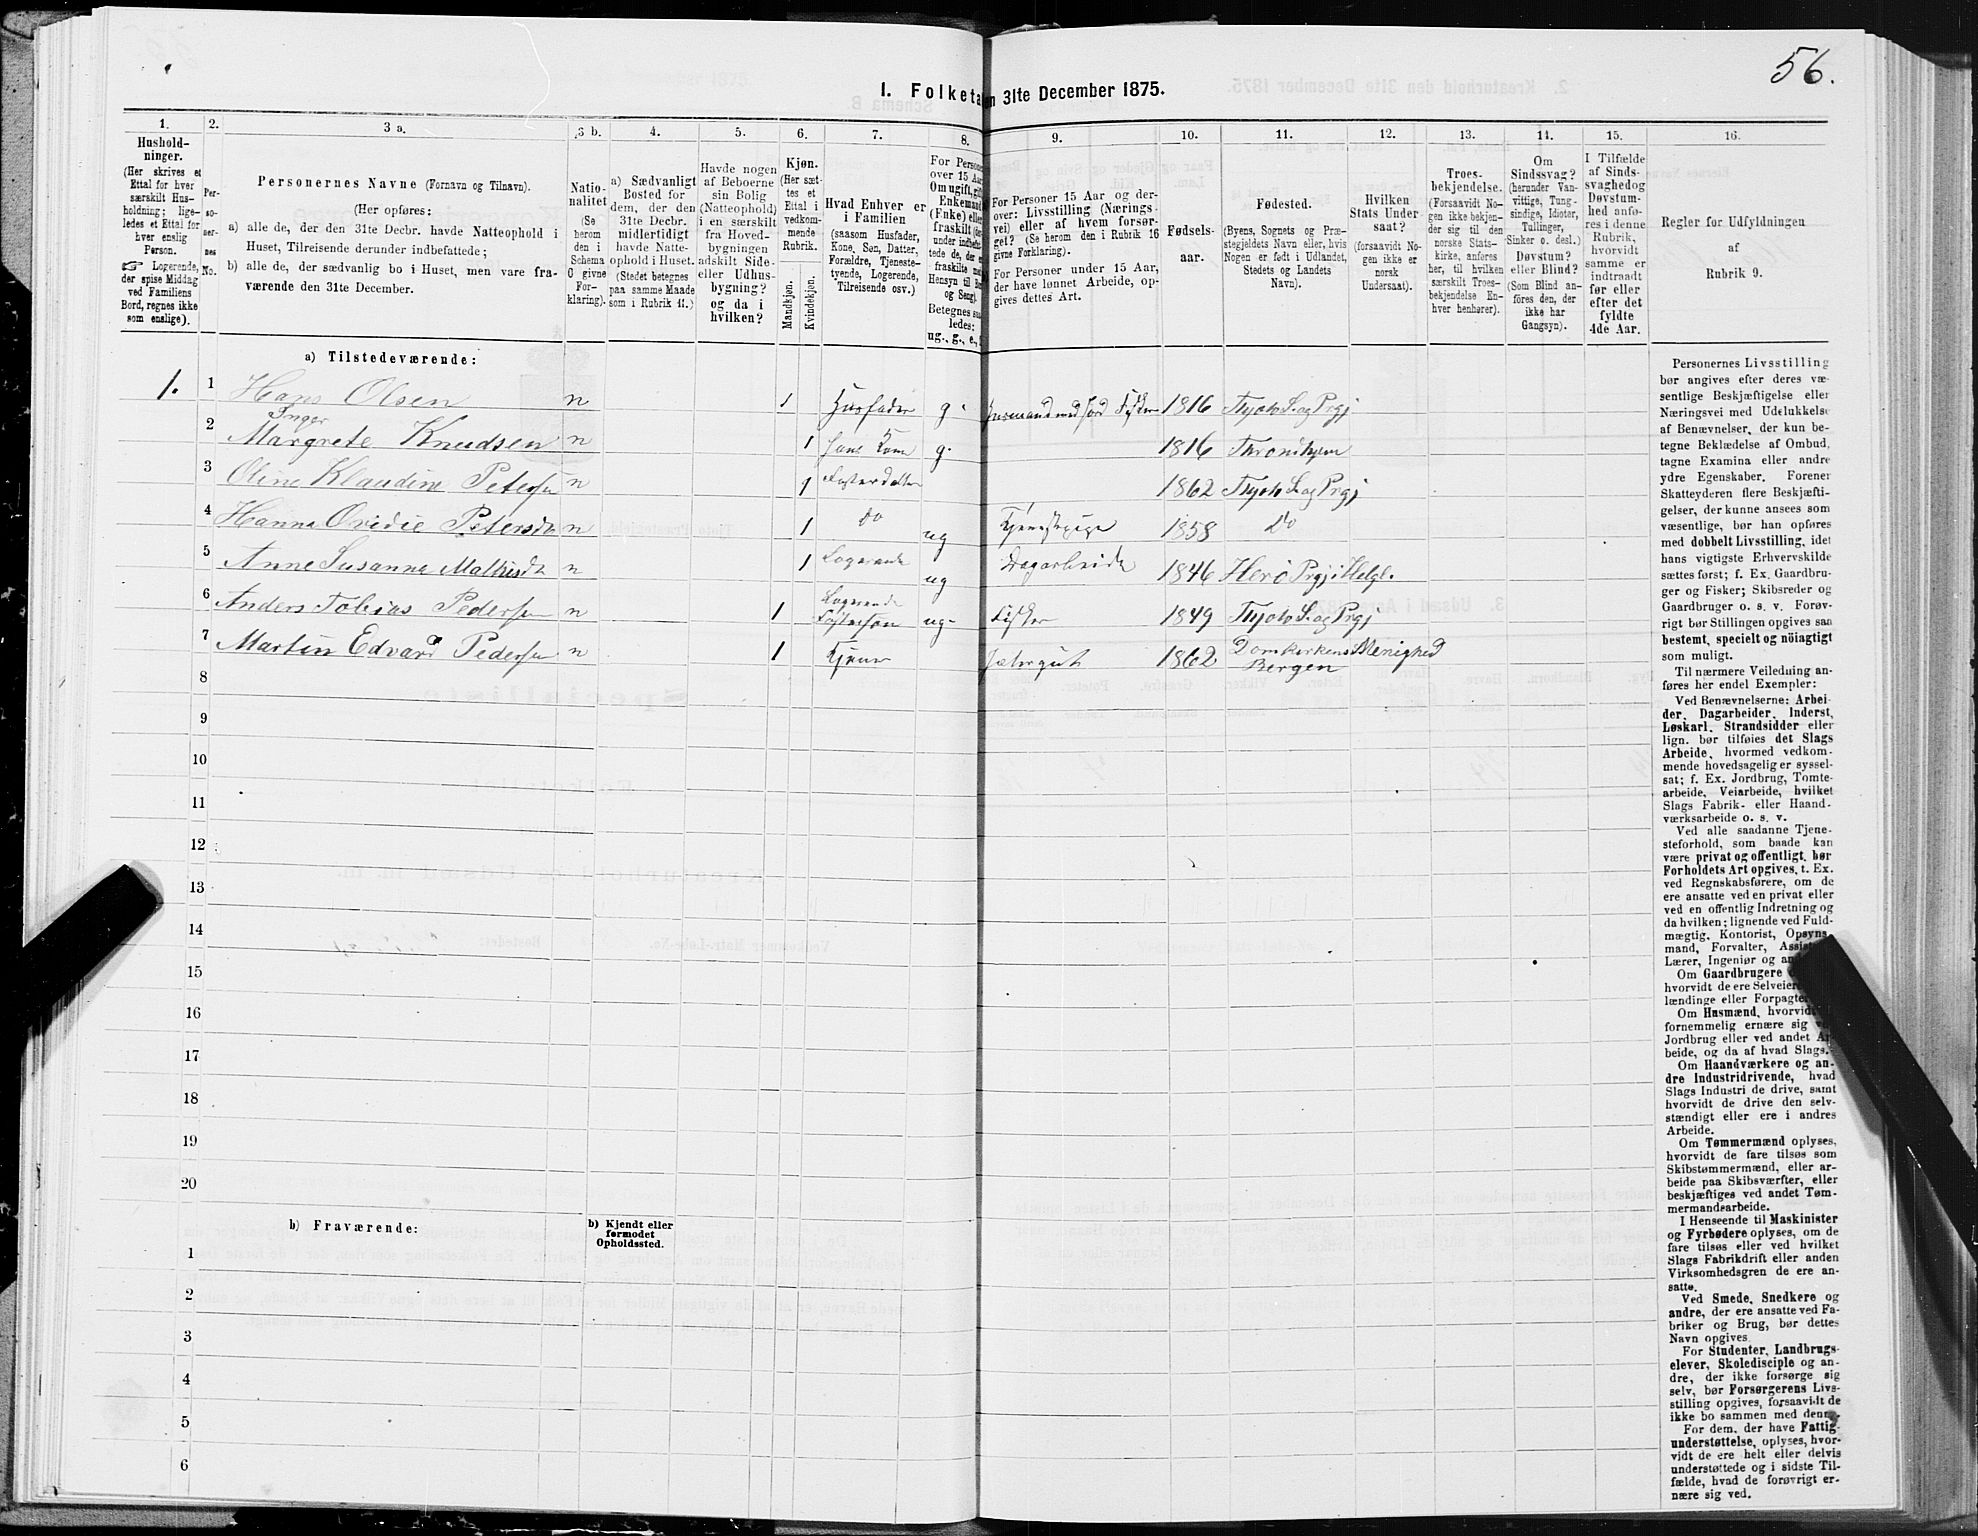 56.
1. Folketal den 31te December 1875.
1. 2. 3 a. 3 b. 4. 5. 6. 7. 8. 9. 10. 11. 12. 13. 14. 15. 16.
Hushold-
ninger.
(Her skrives et
Ettal for hver
særskilt Hus-
holdning; lige-
ledes et Ettal for
hver enslig
Person.
☞ Logerende,
der spise Middag
ved Familiens
Bord, regnes ikke
som enslige).
Per-
so-
ner-
nes
No.
Personernes Navne (Fornavn og Tilnavn).
(Her opføres:
a) alle de, der den 31te Decbr. havde Natteophold i
Huset, Tilreisende derunder indbefattede;
b) alle de, der sædvanlig bo i Huset, men vare fra-
værende den 31te December.
Natio-
nalitet
(Se
herom
den i
Schema
O givne
For-
klaring).
a) Sædvanligt
Bosted for
dem, der den
31te Decbr.
midlertidigt
havde Natte-
ophold i Huset.
(Stedet betegnes
paa samme Maade
som i Rubrik 11.)
Havde nogen
af Beboerne
sin Bolig
(Natteophold)
i en særskilt
fra Hoved-
bygningen
adskilt Side-
eller Udhus-
bygning?
og da i
hvilken?
Kjøn.
(Her sæt-
tes et
Ettal i
vedkom-
mende
Rubrik.
Mandkjøn.
Kvindekjøn.
Hvad Enhver er
i Familien
(saasom Husfader,
Kone, Søn, Datter,
Forældre, Tjeneste-
tyende, Logerende,
Tilreisende osv.)
For Persone
over 15 Aar
Om ugift, gift
Enkemand
(Enke) eller
fraskilt
Hensyn til Bo
og Seng).
Betegnes saa
ledes:
ug., g., e.,
For Personer 15 Aar og der-
over: Livsstilling (Nærings-
vei) eller af hvem forsør-
get? (Se herom den i Rubrik 16
givne Forklaring).
For Personer under 15 Aar,
der have lønnet Arbeide, op-
gives dettes Art.
Fødsels-
aar.
Fødested.
(Byens, Sognets og Præ-
stegjeldets Navn eller, hvis
Nogen er født i Udlandet,
Stedets og Landets
Navn).
Hvilken
Stats Under-
saat?
(forsaavidt No-
gen ikke er
norsk
Undersaat).
Troes-
bekjendelse.
(Forsaavidt No-
gen ikke bekjen-
der sig til den
norske Stats-
kirke, anføres
her, til hvilken
særskilt Troes-
bekjendelse En-
hver henhører).
Om
Sindssvag?
(herunder Van-
vittige, Tung-
sindige, Idioter,
Tullinger,
Sinker o. desl.)
Døvstum?
eller Blind?
(Som Blind an-
føres den, der
ikke har
Gangsyn).
I Tilfælde
af Sinds-
svaghed og
Døvstum-
hed anfø-
res i denne
Rubrik,
hvorvidt
samme er
indtraadt
før eller
efter det
fyldte
4de Aar.
Regler for Udfyldningen
af
Rubrik 9.
a) Tilstedeværende:
1. 1 Hans Olsen n 1 Husfader g. Husmand med Jord Fisker 1816 Thjotø S. og Prgj
Inger
2 Margrete Knudsen n 1 hans Kone g. 1816 Throndhjem
3 Oline Klaudine Petersen n 1 Fosterdatter 1862 Thjotø S. og Prgj
4 Hanna Ovidie Petersdt n 1 do ug Tjenestepige 1858 Do
5 Anne Susanna Mathisdt n 1 Logerende ug Dagarbeide 1846 Herø Prgj i Helgl.
6 Anders Tobias Pedersen n 1 Logerende Søstersøn ug. Fisker 1849 Thjotø S. og Prgj
7 Martin Edvard Pedersen n 1 Tjener 1862 Domkirkens Menighed
Bergen
8
9
10
11
12
13
14
15
16
17
18
19
20
b) Fraværende:
b) Kjendt eller
formodet
Opholdssted.
1
2
3
4
5
6
Personernes Livsstilling
bør angives efter deres væ-
sentlige Beskjæftigelse eller
Næringsvei med Udelukkelse
af Benævnelser, der kun be-
tegne Beklædelse af Ombud,
tagne Examina eller andre
ydre Egenskaber. Forener
Skatteyderen flere Beskjæfti-
gelser, der kunne ansees som
væsentlige, bør han opføres
med dobbelt Livsstilling, idet
hans vigtigste Erhvervskilde
sættes først; f. Ex. Gaardbru-
ger og Fisker; Skibsreder og
Gaardbruger o. s. v. Forøv-
rigt bør Stillingen opgives saa
bestemt, specielt og nöiagtigt
som muligt.
Til nærmere Veiledning an-
føres her endel Exempler:
Ved Benævnelserne: Arbei-
der, Dagarbeider, Inderst,
Løskarl, Strandsidder eller
lign. bør tilføies det Slags
Arbeide, hvormed vedkom-
mende hovedsagelig er syssel-
sat; f. Ex. Jordbrug, Tomte-
arbeide, Veiarbeide, hvilket
Slags Fabrik- eller Haand-
værksarbeide o. s. v.
Ved alle saadanne Tjene-
steforhold, som baade kan
være privat og offentligt, bør
Forholdets Art opgives, t. Ex.
ved Regnskabsførere, om de
ere ansatte ved en privat eller
ved en offentlig Indretning og
da hvilken; lignende ved Fuld-
mægtig, Kontorist, Opsyns-
mand, Forvalter,
Lærer, Ingeniør og
Om Gaardbrugere
hvorvidt de ere
lændinge eller
Om Husmænd, hvorvidt
fornemmelig ernære sig
Jordbrug eller ved andet Ar-
beide, og da af hvad Slags.
Om Haandværkere og an-
dre Industridrivende, hvad
Slags Industri de drive, samt
hvorvidt de drive den selv-
stændigt eller ere i andres
Arbeide.
Om Tømmermænd oplyses,
hvorvidt de fare tilsøs som
Skibstømmermænd, eller ar-
beide paa Skibsværfter, eller
beskjæftiges ved andet Tøm-
mermandsarbeide.
I Henseende til Maskinister
og Fyrbødere oplyses, om de
fare tilsøs eller ved hvilket
Slags Fabrikdrift eller anden
Virksomhedsgren de ere an-
satte.
Ved Smede, Snedkere og
andre, der ere ansatte ved Fa-
briker og Brug, bør dettes
Navn opgives.
For Studenter, Landbrugs-
elever, Skoledisciple og an-
dre, der ikke forsørge sig
selv, bør Forsørgerens Livs-
stilling opgives, forsaavidt de
ikke bo sammen med denne.
For dem, der have Fattig-
understøttelse, oplyses, hvor-
vidt de ere helt eller delvis
understøttede og i sidste Til-
fælde, hvad de forøvrigt er-
nære sig ved.